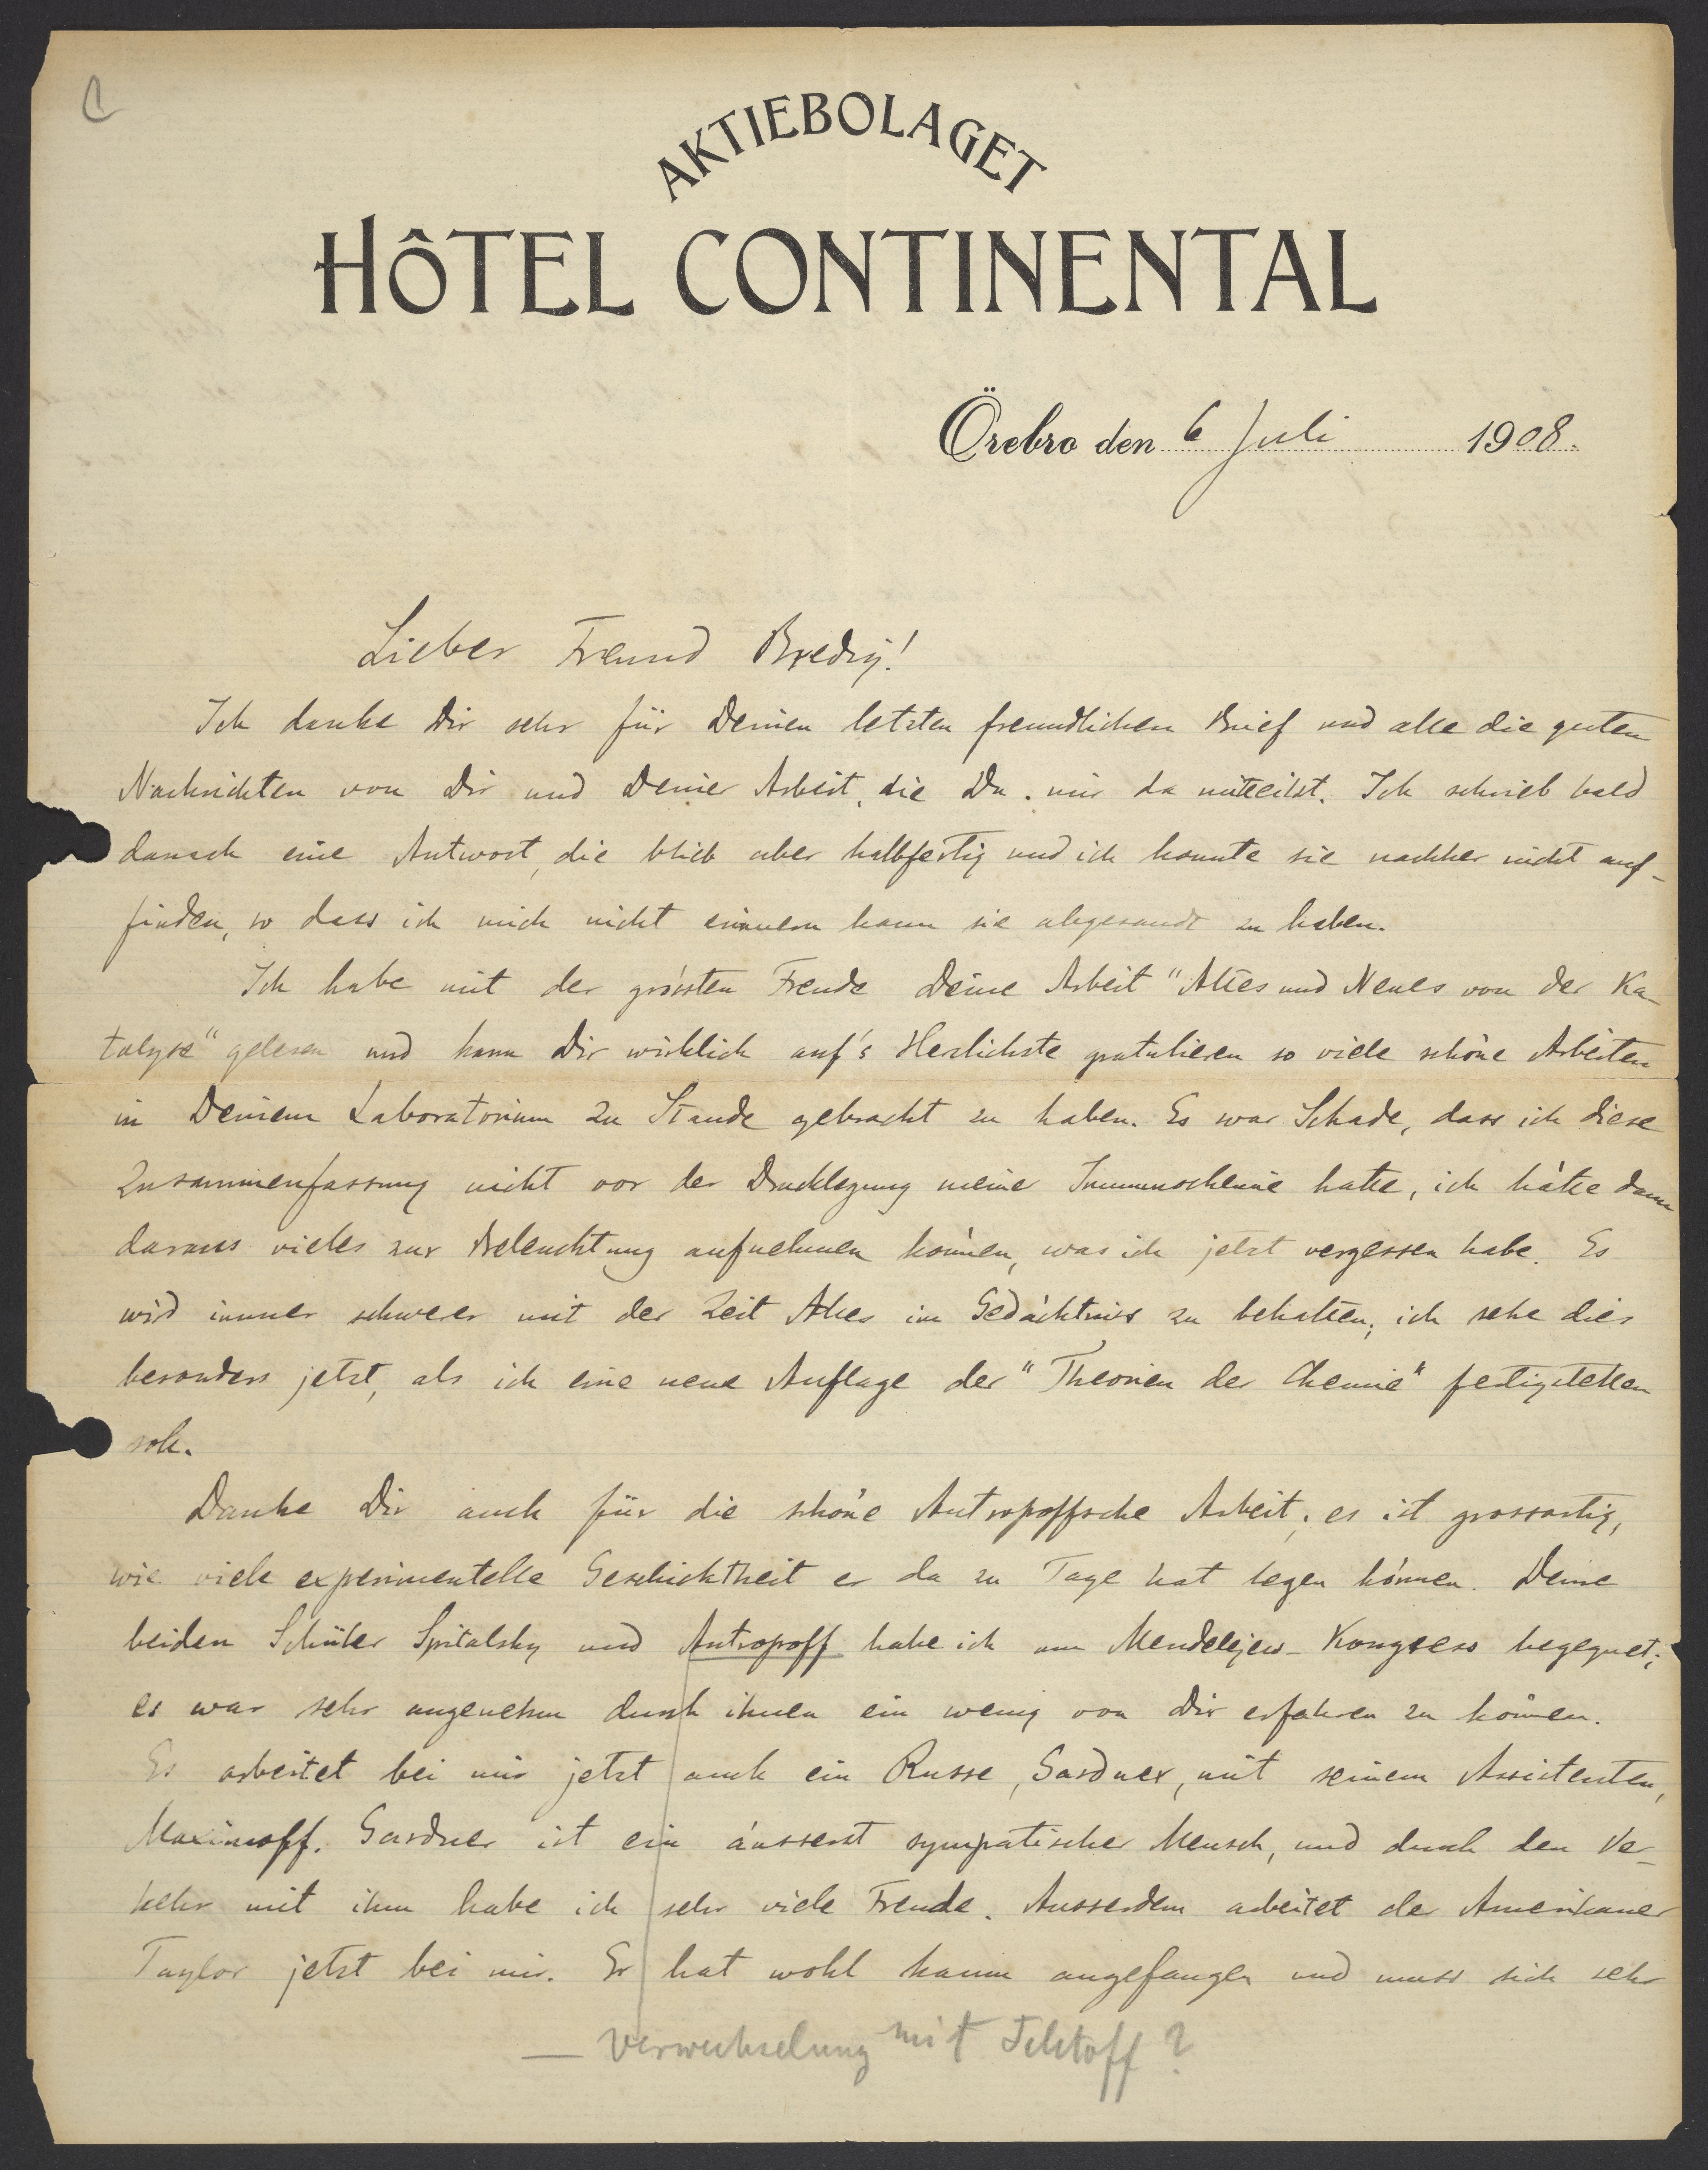 AKTIEBOLAGET
HÔTEL CONTINENTAL
Örebro den 6 Juli 1908.
Lieber Freund Bredig!
Ich danke Dir sehr für Deinen letzten freundlichen Brief und alle die guten
Nachrichten von Dir und Deiner Arbeit, die Du mir da mitteilst. Ich schrieb bald
danach eine Antwort, die blieb aber halbfertig und ich konnte sie nachher nicht auf-
finden, so dass ich mich nicht erinnern kann sie abgesandt zu haben.
Ich habe mit der grössten Freude Deine Arbeit "Altes und Neues von der Ka-
talyse" gelesen und kann Dir wirklich auf's Herzlichste gratulieren so viele schöne Arbeiten
in Deinem Laboratorium zu Stande gebracht zu haben. Es war Schade, dass ich diese
Zusammenfassung nicht vor der Drucklegung meiner Immunochemie hatte, ich hätte dann
daraus vieles zur Beleuchtung aufnehmen können, was ich jetzt vergessen habe. Es
wird immer schwerer mit der Zeit Alles im Gedächtniss zu behalten; ich sehe dies
besonders jetzt, als ich eine neue Auflage der "Theorien der Chemie" fertigstellen
soll.
Danke Dir auch für die schöne Antropoffsche Arbeit; es ist grossartig,
wie viele experimentelle Geschicktheit er da zu Tage hat legen können. Deine
beiden Schüler Spitalsky und Antropoff habe ich am Mendelejew-Kongress begegnet;
es war sehr angenehm durch ihnen ein wenig von Dir erfahren zu können.
Es arbeitet bei mir jetzt auch ein Russe, Gardner, mit seinem Assistenten,
Maximoff. Gardner ist ein äusserst sympatischer Mensch, und durch den Ver-
kehr mit ihm habe ich sehr viele Freude. Ausserdem arbeitet der Amerikaner
Taylor jetzt bei mir. Er hat wohl kaum angefangen und muss sich sehr
— Verwechselung mit ?